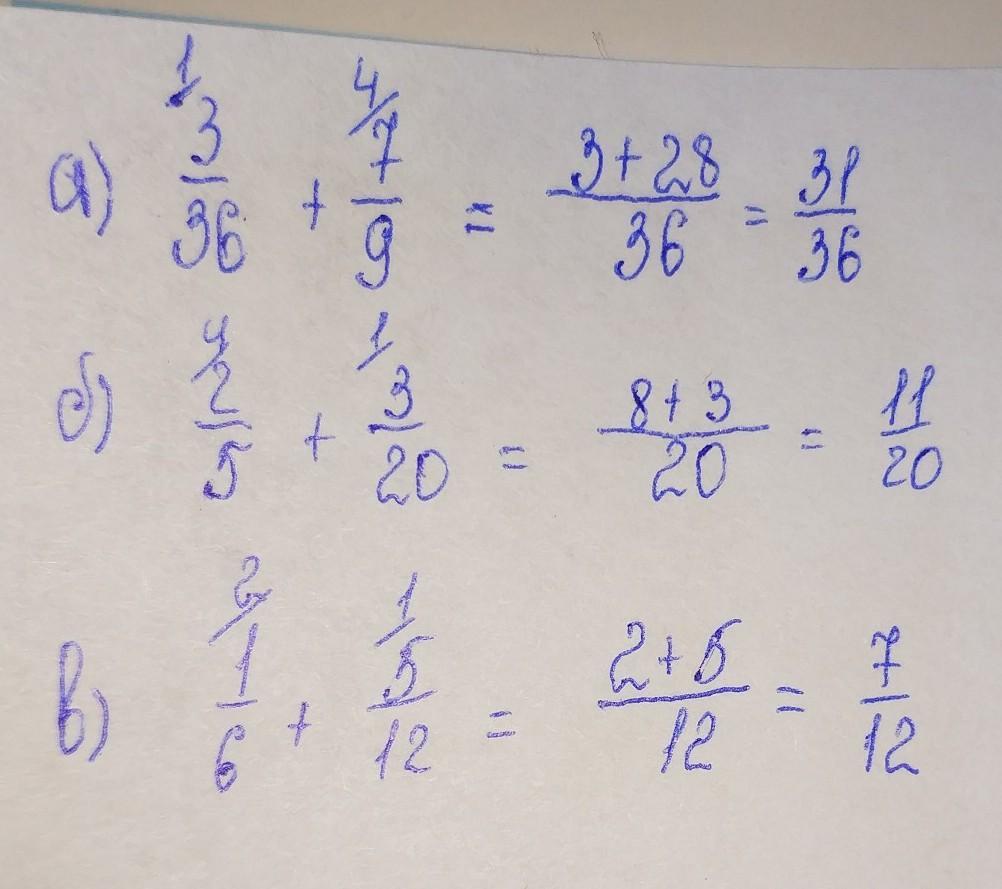 а) ¹/3/36 + ⁴/7/9 = 3+28/36 = 31/36
б) ⁴/2/5 + ¹/3/20 = 8+3/20 = 11/20
в) ²/1/6 + ¹/5/12 = 2+5/12 = 7/12